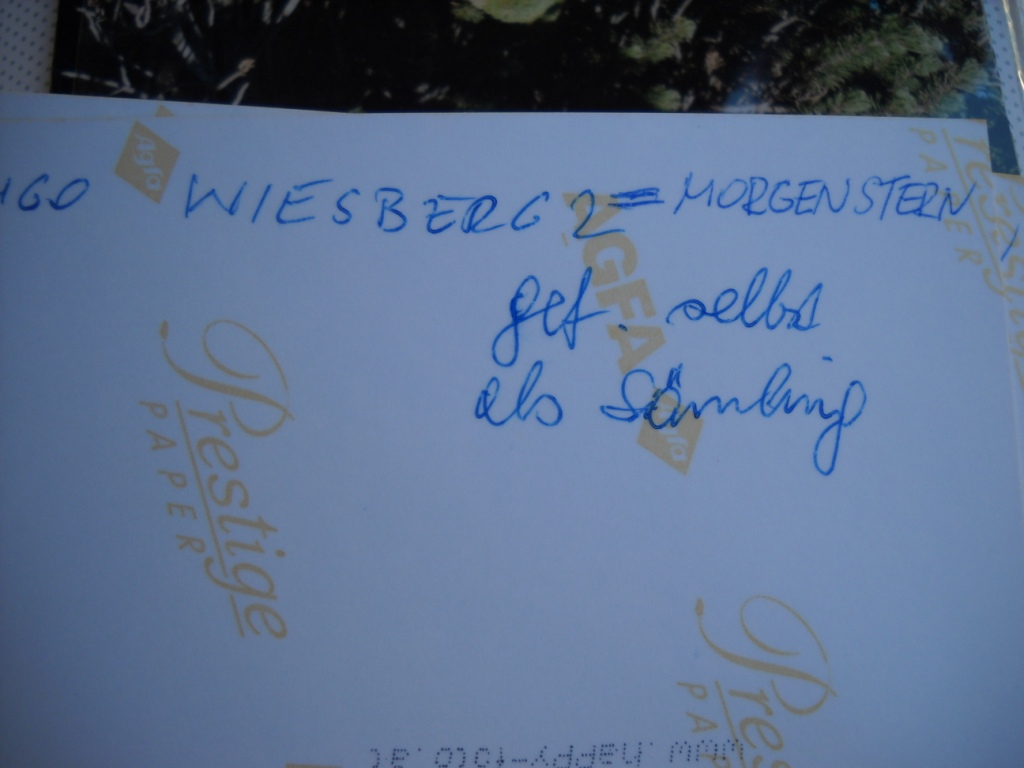 UGO WIESBERG 2 = MORGENSTERN
gef. selbst
als Sämling
agfa
AGFA
agfa
Prestige
PAPER
Prestige
PAPER
Prestige
PAPER
www.happy-foto.at